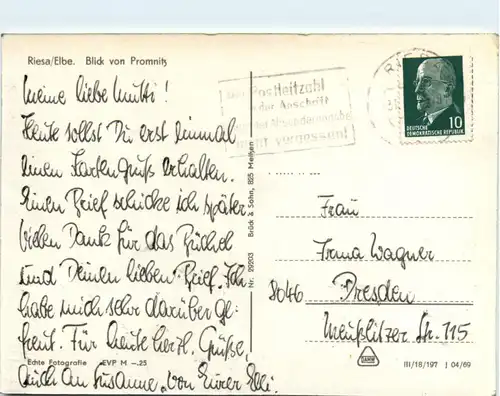 Riesa/Elbe. Blick von Promnitz
Meine liebe Mutti!
Heute sollst Du erst einmal
einen Kartengruß erhalten.
Einen Brief schicke ich später
Vielen Dank für das Büchel
und Deinen lieben Brief. Ich
habe mich sehr darüber ge-
freut. Für heute herzl. Grüße,
auch an Susanne, von Eurer Elli.
Echte Fotografie EVP M –.25
Nr. 29203 Brück & Sohn, 825 Meißen
Postleitzahl
in der Anschrift
und der Absenderangabe
nicht vergessen!
RIESA
10
DEUTSCHE
DEMOKRATISCHE REPUBLIK
Frau
Irma Wagner
8046 Dresden
Meußlitzer Str. 115
III/18/197 J 04/69